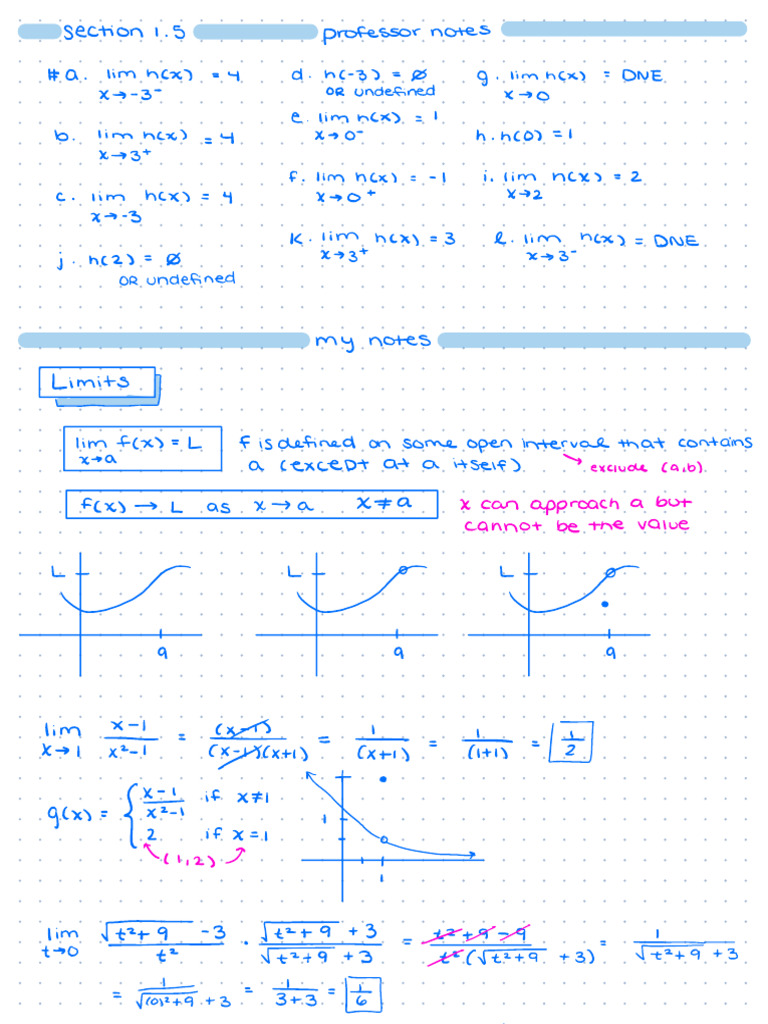 section 1.5 professor notes
#a. lim h(x) = 4
x→-3⁻
b. lim h(x) = 4
x→3⁺
c. lim h(x) = 4
x→-3
j. h(2) = ∅
OR undefined
d. h(-3) = ∅
OR undefined
e. lim h(x) = 1
x→0⁻
f. lim h(x) = -1
x→0⁺
k. lim h(x) = 3
x→3⁺
g. lim h(x) = DNE
x→0
h. h(0) = 1
i. lim h(x) = 2
x→2
l. lim h(x) = DNE
x→3⁻
my notes
Limits
lim f(x) = L
x→a
f is defined on some open interval that contains
a (except at a itself).
exclude (a,b)
f(x) → L as x → a x ≠ a
x can approach a but
cannot be the value
L
a
L
a
L
a
lim x-1 = (x-1) = 1 = 1 = 1
x→1 x²-1 (x-1)(x+1) (x+1) (1+1) 2
g(x) = { x-1 if x≠1
x²-1
2 if x=1
(1,2)
1
1
lim √t²+9 -3 · √t²+9 +3 = t²+9-9 = 1
t→0 t² √t²+9 +3 t²(√t²+9 +3) √t²+9 +3
= 1 = 1 = 1
√(0)²+9 +3 3+3 6